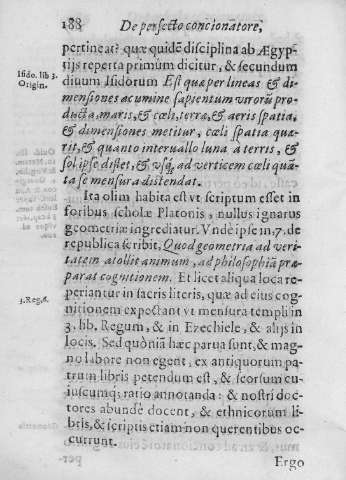 188 De perfecto concionatore,
pertineat? quæ quidē disciplina ab Ægyp-
tijs reperta primum dicitur, & secundum
Isido. lib 3. Origin.
diuum Isidorum Est quæ per lineas & di-
mensiones acumine sapientum virorū pro-
ducta, maris, & cœli, terræ, & aeris spatia,
& dimensiones metitur, cœli spatia quæ-
rit, & quanto interuallo luna à terris, &
sol ipse distet, & vsq; ad verticem cœli quā-
ta se mensura distendat.
Ita olim habita est vt scriptum esset in
foribus scholæ Platonis, nullus ignarus
geometriæ ingrediatur. Vnde ipse in. 7. de
republica scribit, Quod geometria ad veri-
tatem atollit animum, ad philosophiā præ-
parat cognitionem. Et licet aliqua loca re-
3. Reg. 6.
periantur in sacris literis, quæ ad eius cog-
nitionem expectant vt mensura templi in
3. lib. Regum, & in Ezechiele, & alijs in
locis. Sed quōniā hæc parua sunt, & mag-
no labore non egent, ex antiquorum pa-
trum libris petendum est, & seorsum cu-
iuscumq; ratio annotanda: & nostri doc-
tores abundè docent, & ethnicorum li-
bris, & scriptis etiam non querentibus oc-
currunt.
Ergo